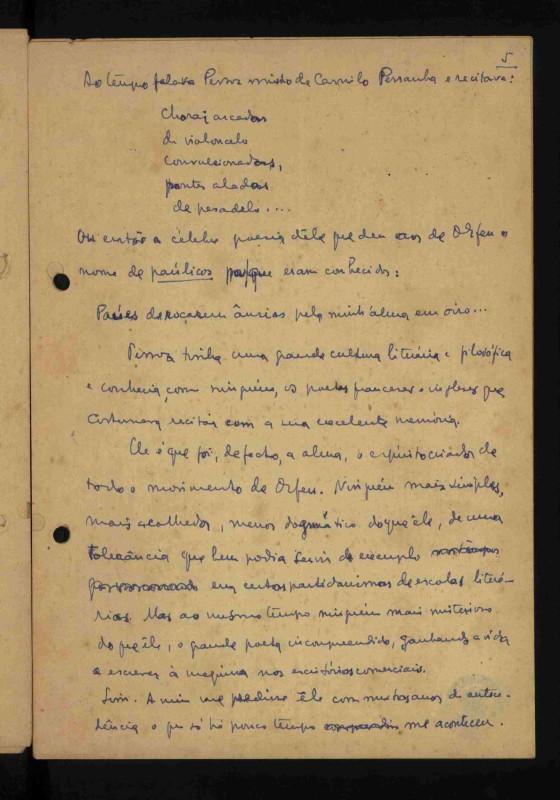 5
Ao tempo falava Pessoa muito de Camilo Pessanha e recitava:
Chorai arcadas
de violoncelo
convulsionadas,
pontes aladas
de pesadelo....
Ou então a célebre poesia dele que deu aos de Orfeu o
nome de paúlicos porque eram conhecidos:
Paúes de roçarem ânsias pela minh'alma em oiro...
Pessoa tinha uma grande cultura literária e filosófica
e conhecia, como ninguém, os poetas franceses e ingleses que
costumava recitar com a sua excelente memória.
Ele é que foi, de facto, a alma, o espírito criador de
todo o movimento de Orfeu. Ninguém mais simples,
mais acolhedor, menos dogmático do que êle, de uma
tolerância que bem podia servir de exemplo
em certos partidarismos de escolas literá-
rias. Mas ao mesmo tempo ninguém mais misterioso
do que êle, o grande poeta incompreendido, ganhando a vida
a escrever à maquina nos escritórios comerciais.
Sim. A mim me predisse êle com muitos anos de antece-
dência o que só há pouco tempo me aconteceu.